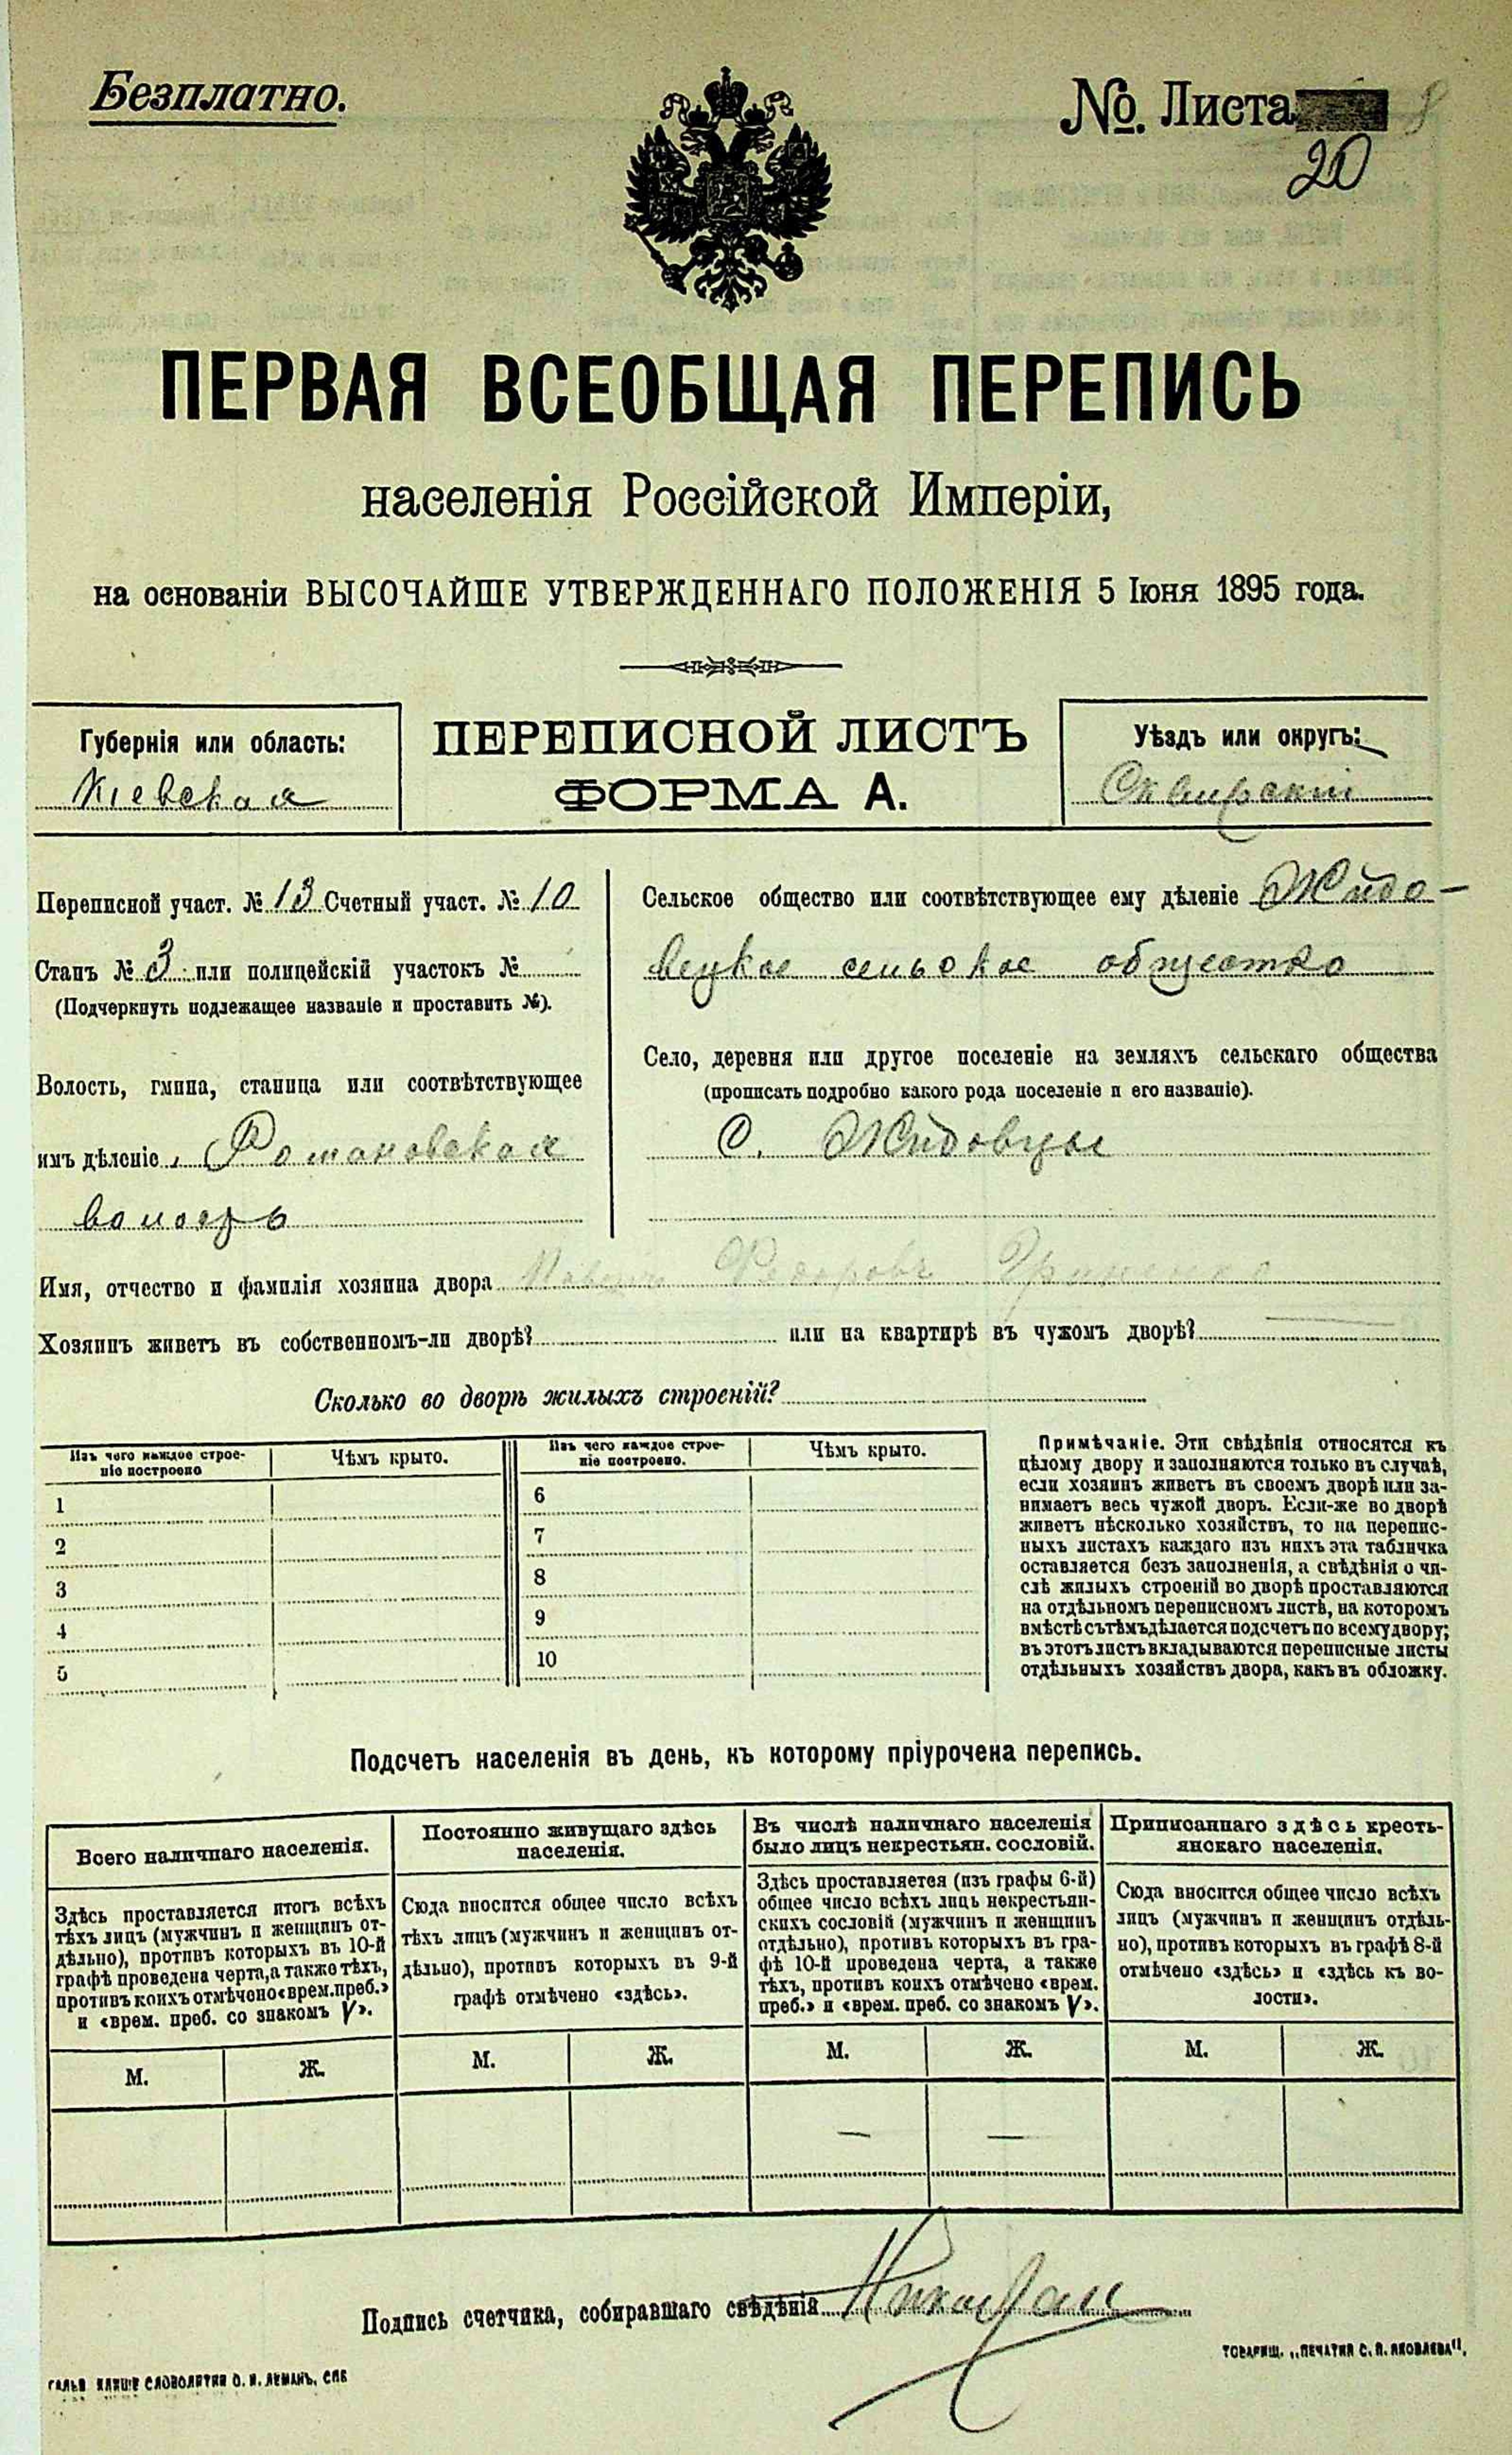 Безплатно.
№. Листа
20
ПЕРВАЯ ВСЕОБЩАЯ ПЕРЕПИСЬ
населенія Россійской Имперіи,
на основаніи ВЫСОЧАЙШЕ УТВЕРЖДЕННАГО ПОЛОЖЕНІЯ 5 Іюня 1895 года.
Губернія или область:
Кіевская
ПЕРЕПИСНОЙ ЛИСТЪ
ФОРМА А.
Уѣздъ или округъ:
Сквирскій
Переписной участ. № 13 Счетный участ. № 10
Станъ № 3 или полицейскій участокъ №
(Подчеркнуть подлежащее названіе и проставить №).
Волость, гмина, станица или соотвѣтствующее
имъ дѣленіе Романовская
волость
Сельское общество или соотвѣтствующее ему дѣленіе Жидо-
вецкое сельское общество
Село, деревня или другое поселеніе на земляхъ сельскаго общества
(прописать подробно какого рода поселеніе и его названіе).
С. Жидовцы
Имя, отчество и фамилія хозяина двора Федоровъ
Хозяинъ живетъ въ собственномъ-ли дворѣ? или на квартирѣ въ чужомъ дворѣ?
Сколько во дворѣ жилыхъ строеній?
Изъ чего каждое строе-
ніе построено
Чѣмъ крыто.
Изъ чего каждое строе-
ніе построено.
Чѣмъ крыто.
1
2
3
4
5
6
7
8
9
10
Примѣчаніе. Эти свѣдѣнія относятся къ
цѣлому двору и заполняются только въ случаѣ,
если хозяинъ живетъ въ своемъ дворѣ или за-
нимаетъ весь чужой дворъ. Если-же во дворѣ
живетъ нѣсколько хозяйствъ, то на перепис-
ныхъ листахъ каждаго изъ нихъ эта табличка
оставляется безъ заполненія, а свѣдѣнія о чи-
слѣ жилыхъ строеній во дворѣ проставляются
на отдѣльномъ переписномъ листѣ, на которомъ
вмѣстѣ съ тѣмъ дѣлается подсчетъ по всему двору;
въ этотъ листъ вкладываются переписные листы
отдѣльныхъ хозяйствъ двора, какъ въ обложку.
Подсчетъ населенія въ день, къ которому пріурочена перепись.
Всего наличнаго населенія.
Здѣсь проставляется итогъ всѣхъ
тѣхъ лицъ (мужчинъ и женщинъ от-
дѣльно), противъ которыхъ въ 10-й
графѣ проведена черта, а также тѣхъ,
противъ коихъ отмѣчено «врем. преб.»
и «врем. преб. со знакомъ V».
М. Ж.
Постоянно живущаго здѣсь
населенія.
Сюда вносится общее число всѣхъ
тѣхъ лицъ (мужчинъ и женщинъ от-
дѣльно), противъ которыхъ въ 9-й
графѣ отмѣчено «здѣсь».
М. Ж.
Въ числѣ наличнаго населенія
было лицъ некрестьян. сословій.
Здѣсь проставляется (изъ графы 6-й)
общее число всѣхъ лицъ некрестьян-
скихъ сословій (мужчинъ и женщинъ
отдѣльно), противъ которыхъ въ гра-
фѣ 10-й проведена черта, а также
тѣхъ, противъ коихъ отмѣчено «врем.
преб.» и «врем. преб. со знакомъ V».
М. Ж.
— —
Приписаннаго здѣсь кресть-
янскаго населенія.
Сюда вносится общее число всѣхъ
лицъ (мужчинъ и женщинъ отдѣль-
но), противъ которыхъ въ графѣ 8-й
отмѣчено «здѣсь» и «здѣсь къ во-
лости».
М. Ж.
Подпись счетчика, собиравшаго свѣдѣнія
ГАЛЬВ. КЛИШЕ СЛОВОЛИТНИ О. И. ЛЕМАНЪ, СПБ
ТОВАРИЩ. „ПЕЧАТНЯ С. П. ЯКОВЛЕВА",